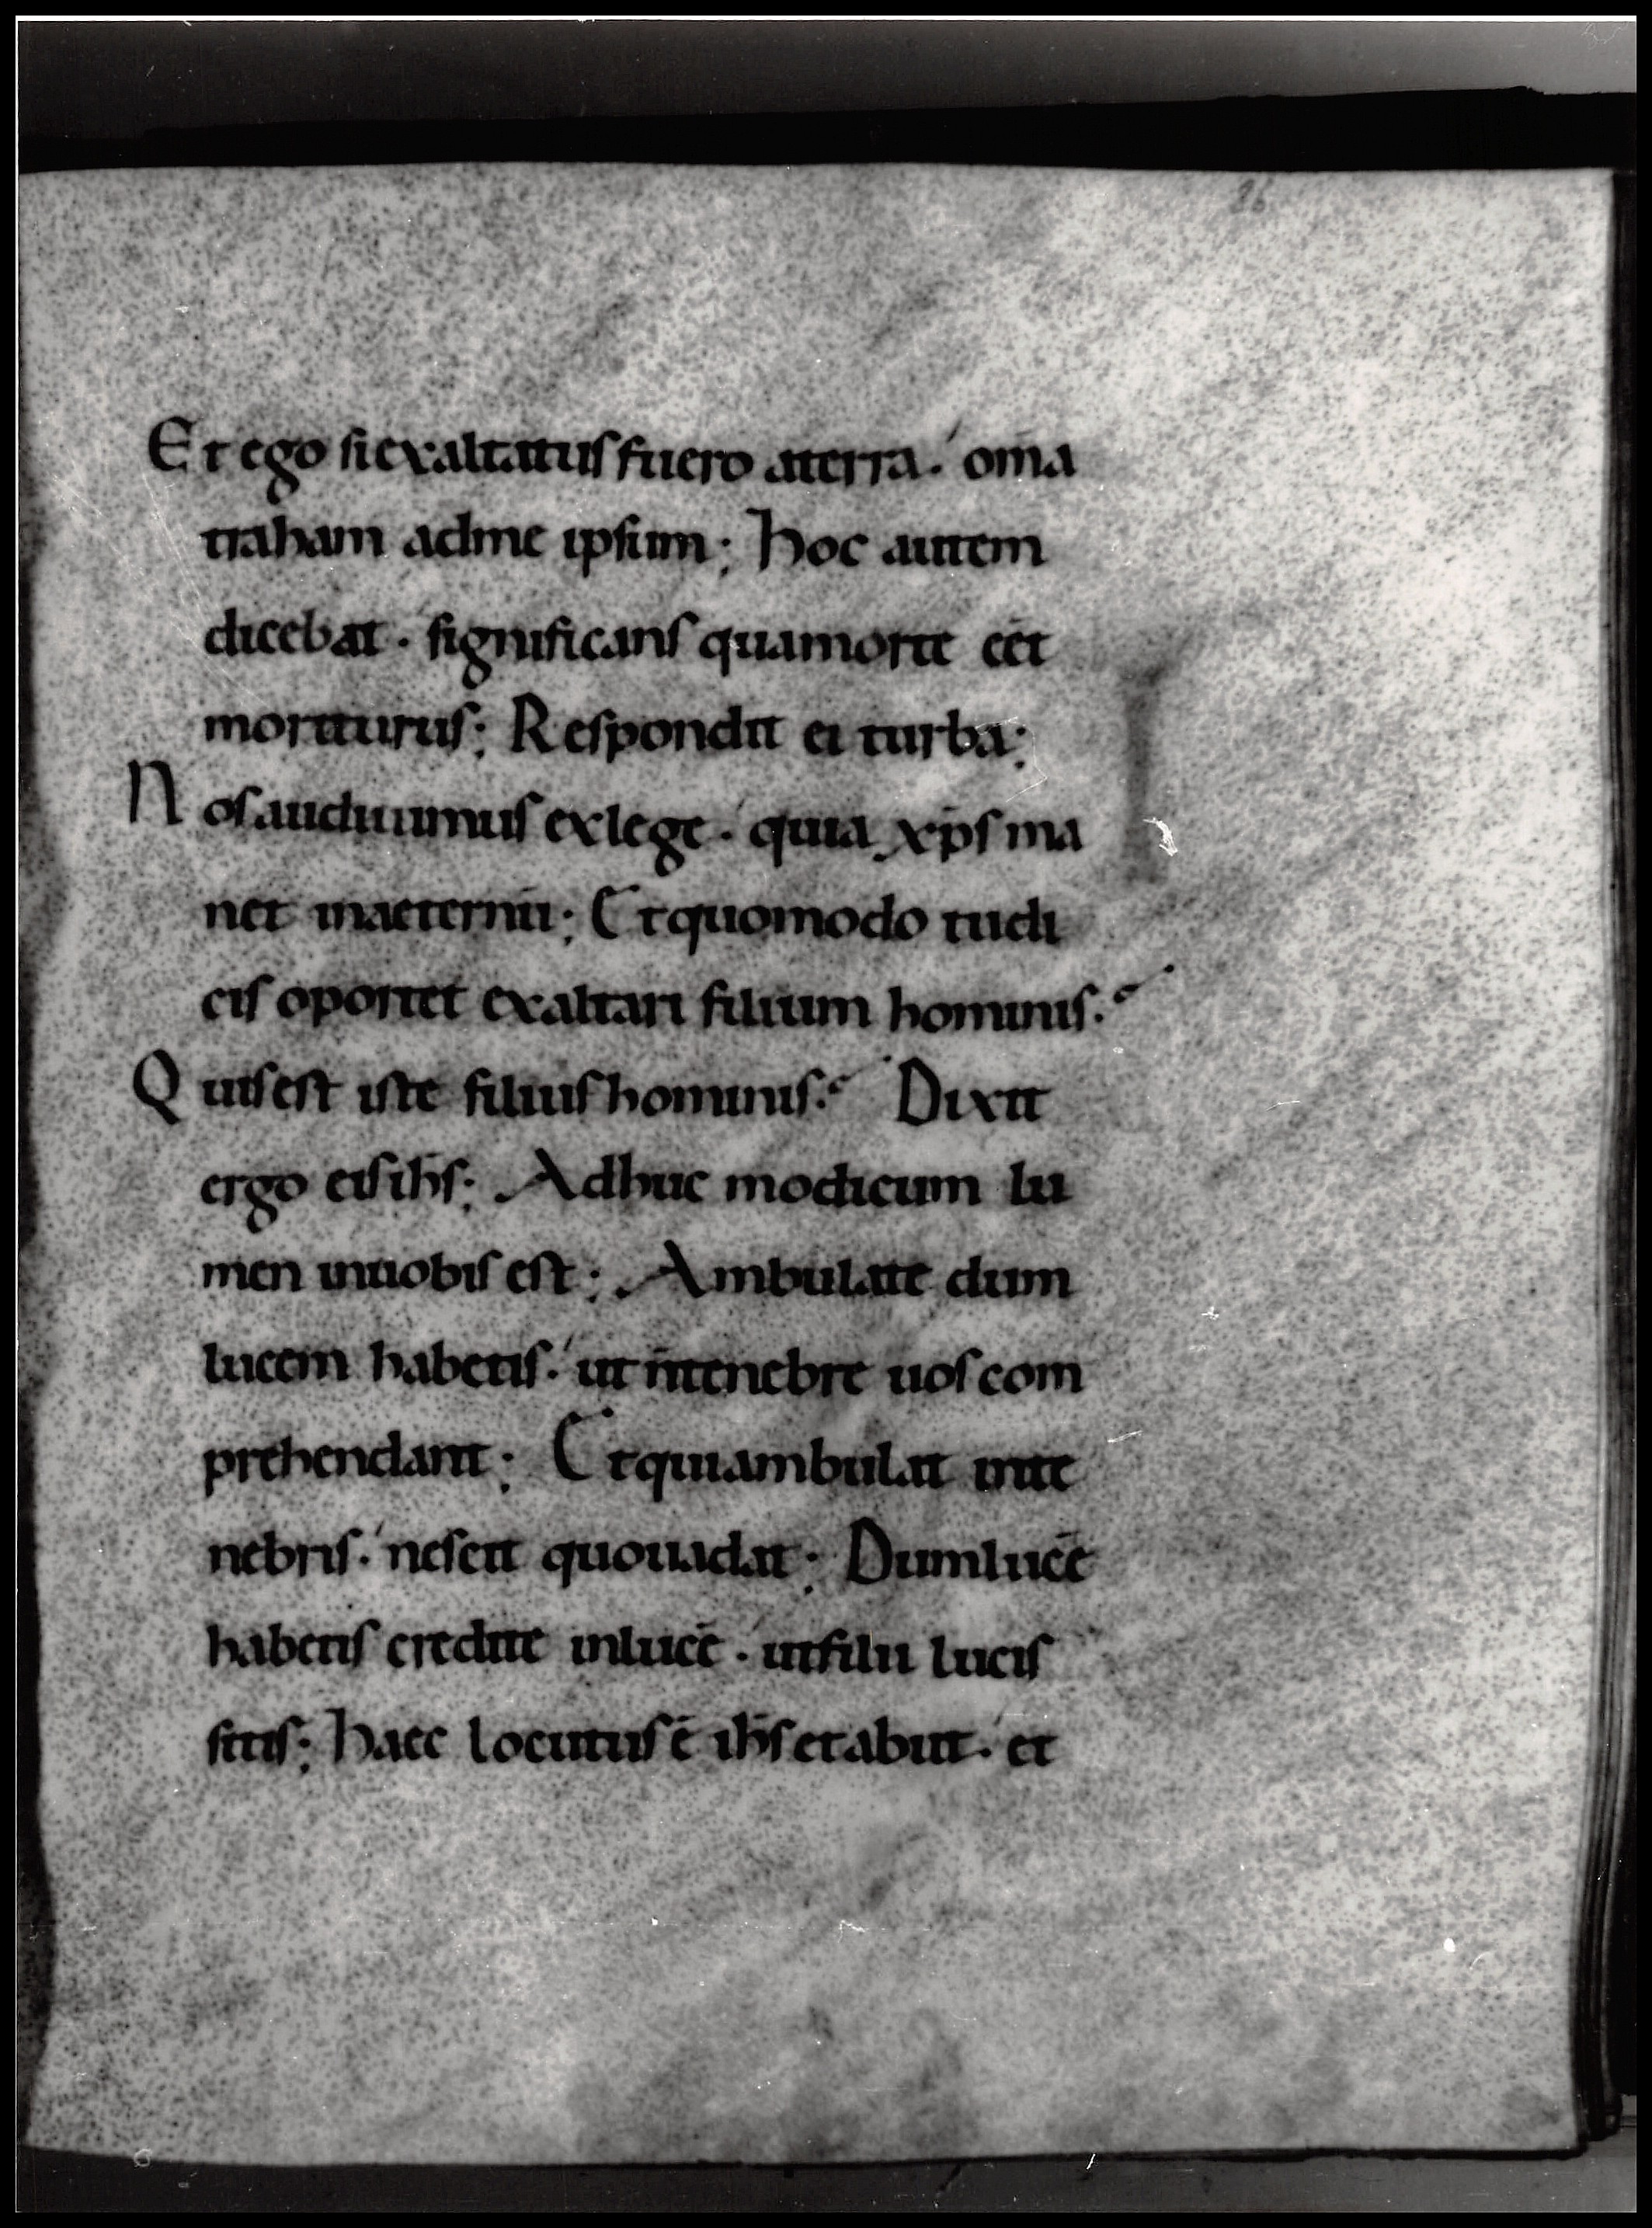 26
Et ego si exaltatus fuero aterra. om̄a
traham adme ipsum; hoc autem
dicebat. significans quamorte eēt
moriturus; Respondit ei turba;
Nos audiuimus exlege. quia xp̄s ma
net inaeternū; Et quomodo tudi
cis oportet exaltari filium hominis.
Quis est iste filius hominis. Dixit
ergo eis ihs̄; Adhuc modicum lu
men inuobis est; Ambulate dum
lucem habetis. ut n̄ tenebre uos com
prehendant; Et qui ambulat inte
nebris. nescit quouadat; Dum lucē
habetis credite inlucē. ut filii lucis
sitis; haec locutus ē ihs̄ et abiit. et